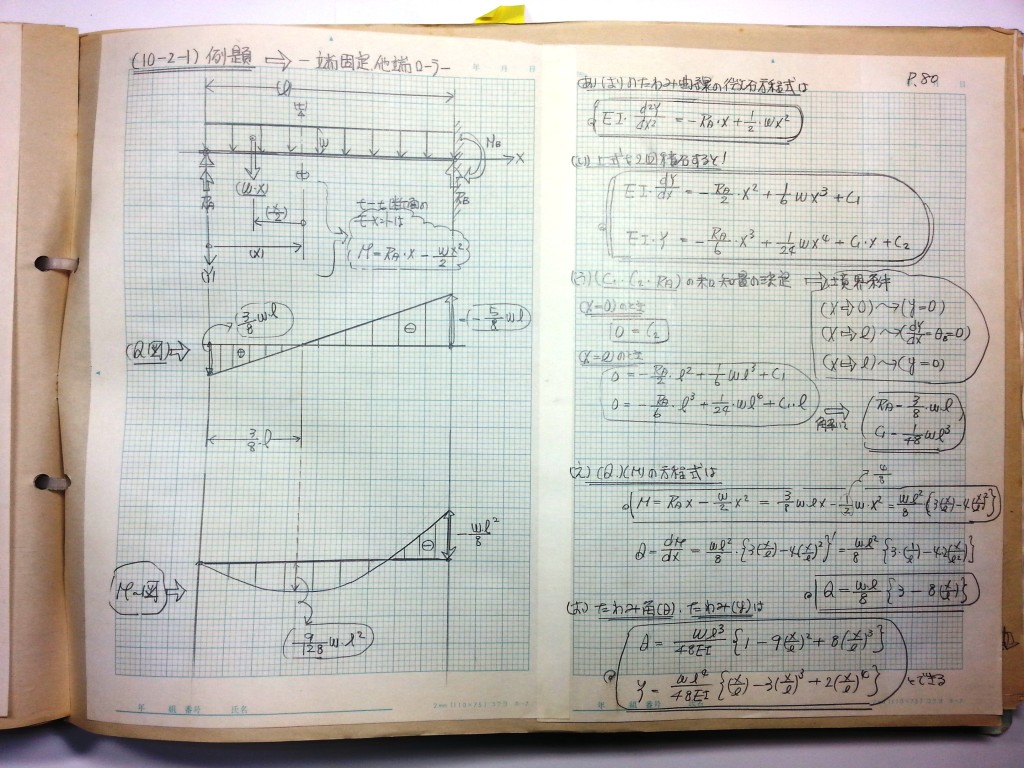 (10-2-1) 例題 ⇨ 一端固定他端ローラー
年 月 日
(l)
w
M_B
X
(w・x)
(x/2)
R_A
R_B
(x)
(Y)
M = R_A・x - wx²/2
(3/8 wl)
= (-5/8 wl)
(Q図)⇨
⊕
⊖
3/8・l
- wl²/8
⊖
M図⇨
(9/128 w・l²)
年 組 番号 氏名
P.80
(あ)(はり)のたわみ曲線の微分方程式は
EI・d²Y/dx² = -R_A・x + 1/2・wx²
(い)上式を2回積分すると!
EI・dY/dx = -R_A/2・x² + 1/6 wx³ + C₁
EI・Y = -R_A/6・x³ + 1/24 wx⁴ + C₁・x + C₂
(う)(C₁・C₂・R_A)の未知量の決定 ⇨境界条件
(x=0)のとき
0 = C₂
(x⇨0)⤳(y=0)
(x⇨l)⤳(dy/dx=θ_B=0)
(x⇨l)⤳(y=0)
(x=l)のとき
0 = -R_A/2・l² + 1/6 wl³ + C₁
0 = -R_A/6・l³ + 1/24・wl⁴ + C₁・l
⇨ 解いて
R_A = 3/8・wl
C₁ = 1/48 wl³
(え)(Q)(M)の方程式は
4/8
M = R_A x - w/2 x² = 3/8 wlx - 1/2 w・x² = wl²/8 {3(x/l) - 4(x/l)²}
Q = dM/dx = wl²/8・{3(x/l) - 4(x/l)²}' = wl²/8 {3・(1/l) - 4・2(x/l²)}
Q = wl/8 {3 - 8(x/l)}
(お) たわみ角(θ)、たわみ(y)は
θ = wl³/48EI {1 - 9(x/l)² + 8(x/l)³}
Y = wl⁴/48EI {(x/l) - 3(x/l)³ + 2(x/l)⁴} とできる
年 組 番号 氏名